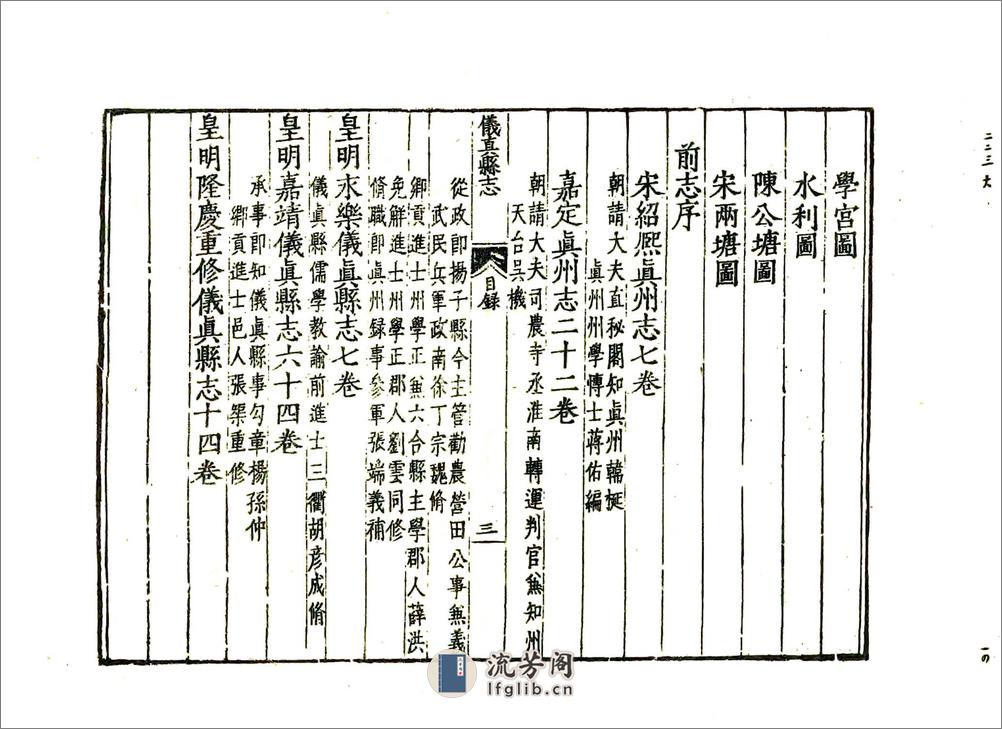 學宮圖
水利圖
陳公塘圖
宋兩塘圖
前志序
宋紹熙眞州志七卷
朝請大夫直秘閣知眞州韓挻
眞州州學愽士蒋佑編
嘉定眞州志二十二卷
朝請大夫司農寺丞淮南轉運判官兼知州
天台吴機
儀真縣志
目録
三
從政郎揚子縣令主管勸農營田公事兼義
武民兵軍政南徐丁宗魏脩
鄉貢進士州學正兼六合縣主學郡人薛洪
免解進士州學正郡人劉雲同修
脩職郎眞州録事參軍張端義補
皇明永樂儀眞縣志七卷
儀眞縣儒學教諭前進士三衢胡彦成脩
皇明嘉靖儀眞縣志六十四卷
承事郎知儀眞縣事勾章楊孫仲
鄉貢進士邑人張榘重修
皇明隆慶重修儀眞縣志十四卷
二二三七
一の
流芳阁
lfglib.cn